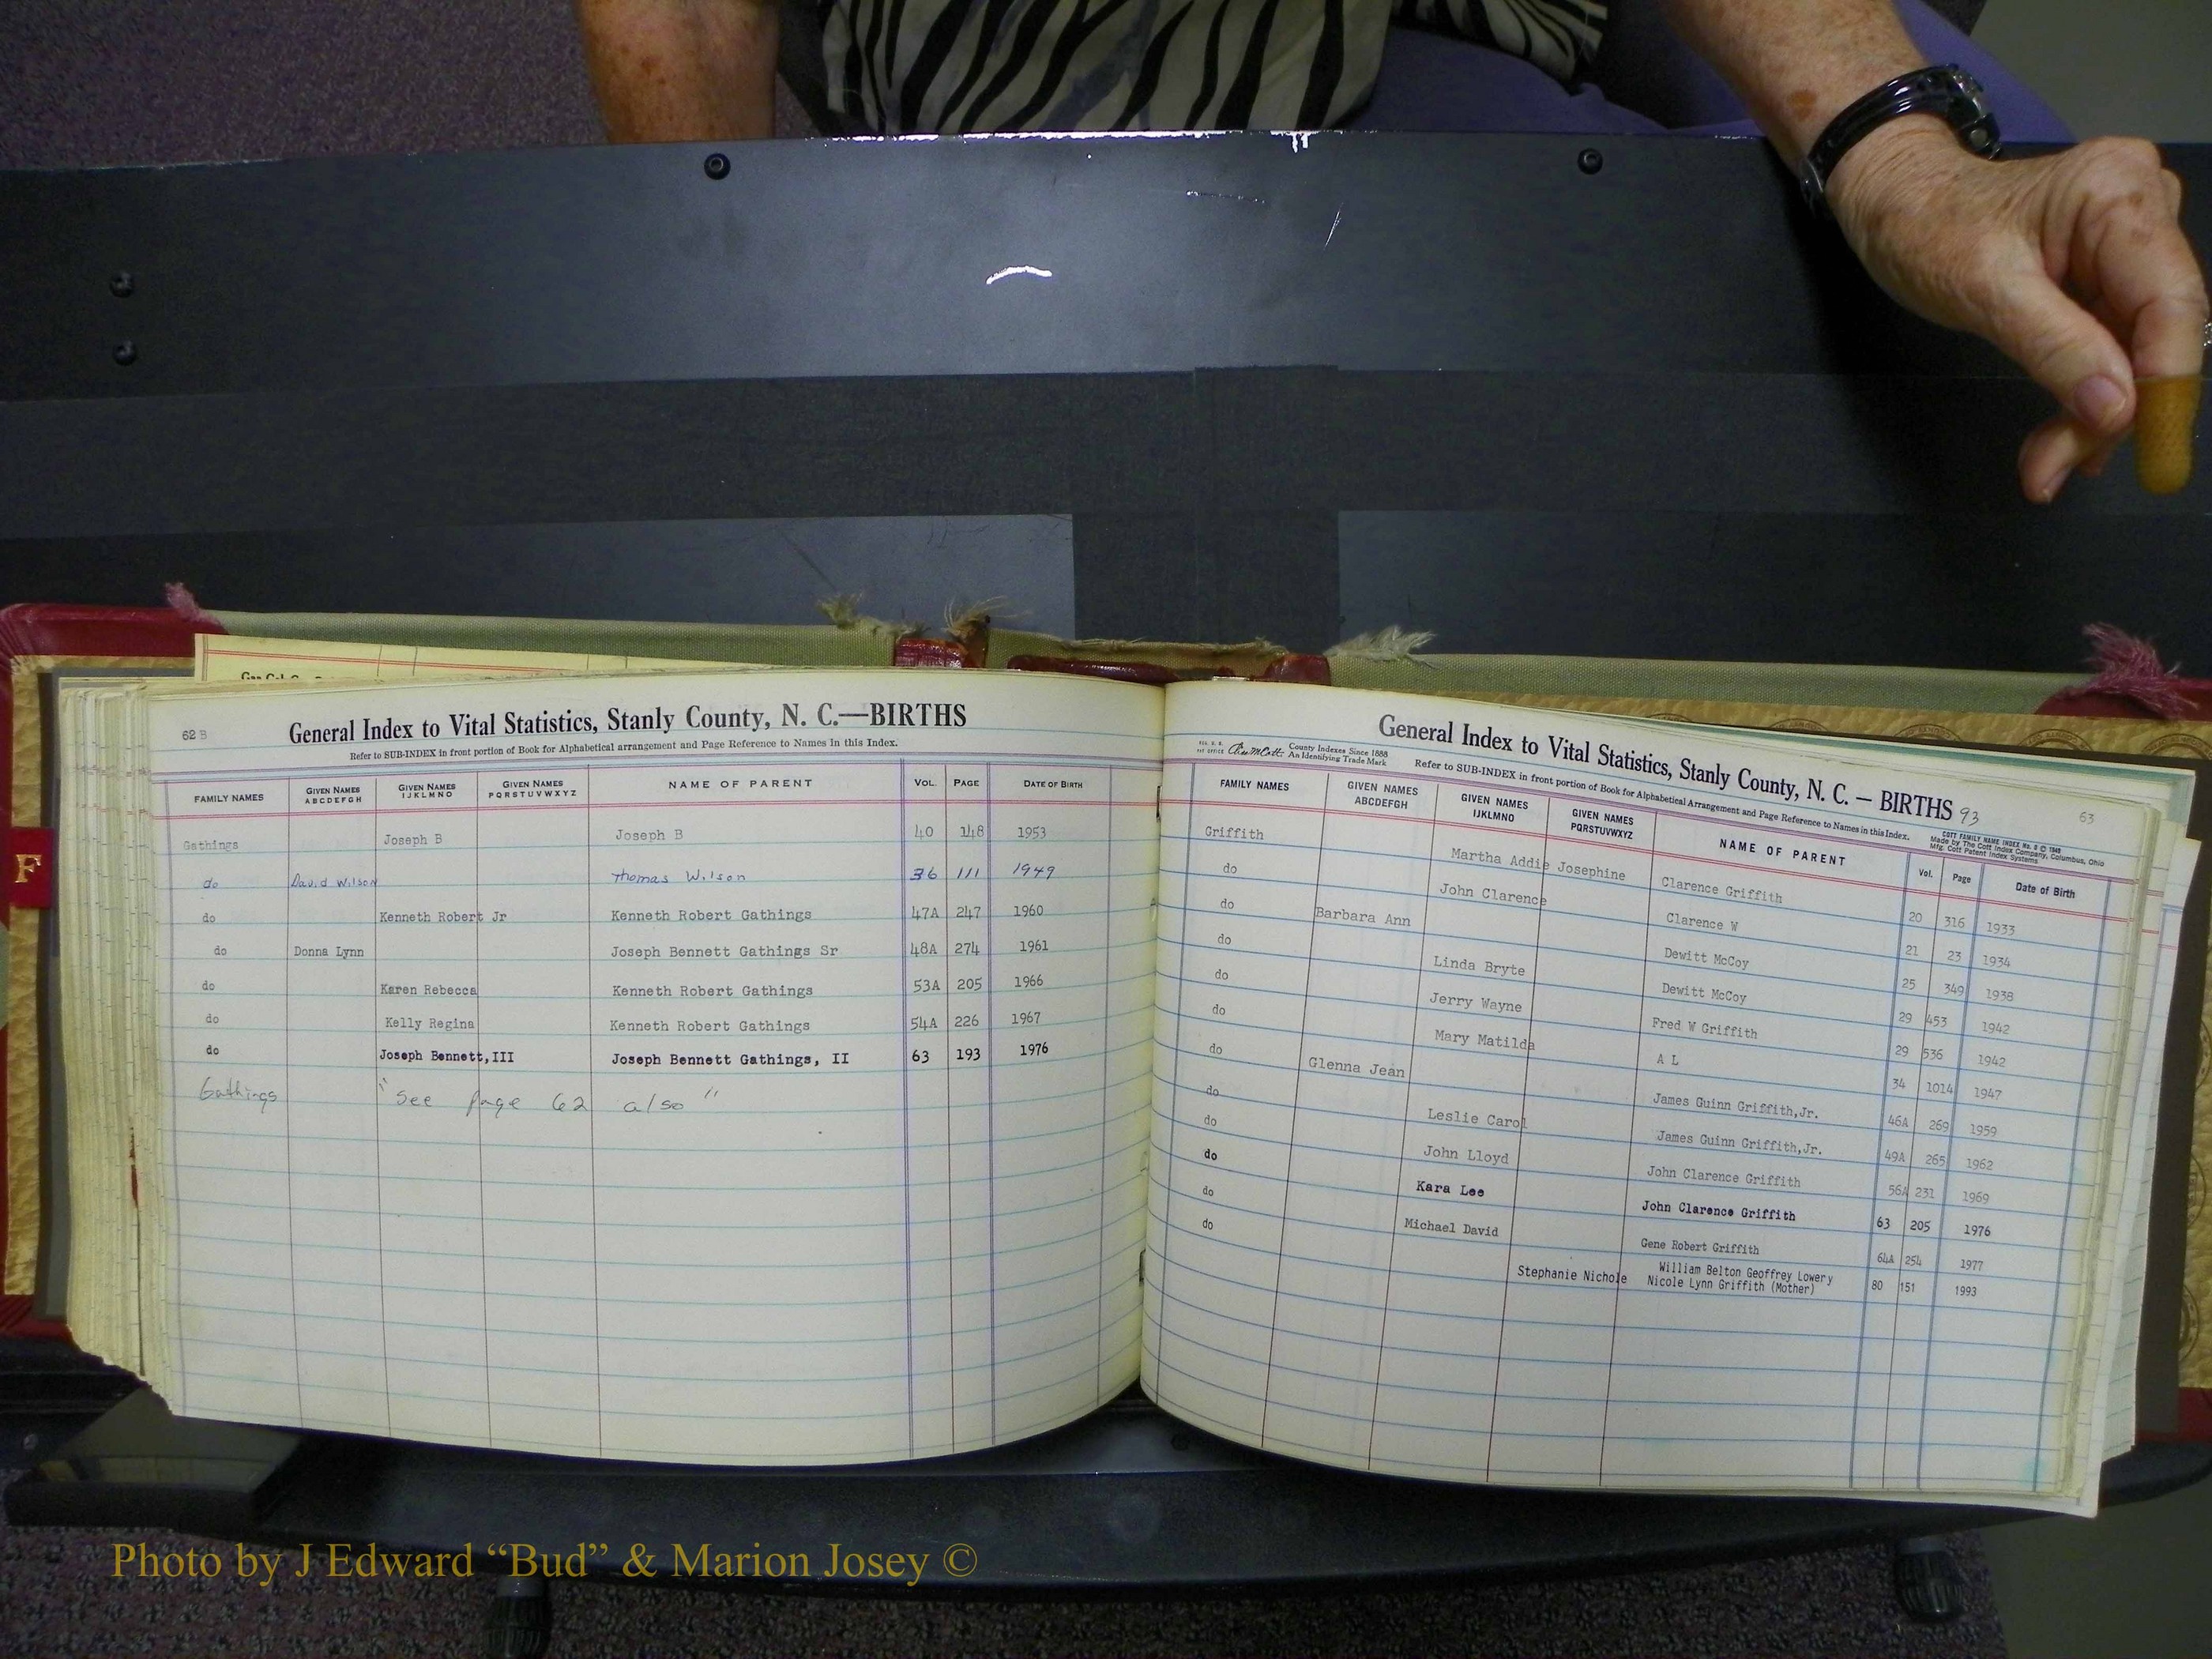 F
62 B
General Index to Vital Statistics, Stanly County, N. C.—BIRTHS
Refer to SUB-INDEX in front portion of Book for Alphabetical arrangement and Page Reference to Names in this Index.
FAMILY NAMES GIVEN NAMES ABCDEFGH GIVEN NAMES IJKLMNO GIVEN NAMES PQRSTUVWXYZ NAME OF PARENT VOL. PAGE DATE OF BIRTH
Gathings Joseph B Joseph B 40 148 1953
do David Wilson Thomas Wilson 36 111 1949
do Kenneth Robert Jr Kenneth Robert Gathings 47A 247 1960
do Donna Lynn Joseph Bennett Gathings Sr 48A 274 1961
do Karen Rebecca Kenneth Robert Gathings 53A 205 1966
do Kelly Regina Kenneth Robert Gathings 54A 226 1967
do Joseph Bennett,III Joseph Bennett Gathings, II 63 193 1976
Gathings "See page 62 also"
General Index to Vital Statistics, Stanly County, N. C. — BIRTHS 93
63
County Indexes Since 1888
An Identifying Trade Mark
Refer to SUB-INDEX in front portion of Book for Alphabetical Arrangement and Page Reference to Names in this Index.
COTT FAMILY NAME INDEX No. 8 © 1948
Made by The Cott Index Company, Columbus, Ohio
Mfg. Cott Patent Index Systems
FAMILY NAMES GIVEN NAMES ABCDEFGH GIVEN NAMES IJKLMNO GIVEN NAMES PQRSTUVWXYZ NAME OF PARENT Vol. Page Date of Birth
Griffith Martha Addie Josephine Clarence Griffith 20 316 1933
do John Clarence Clarence W 21 23 1934
do Barbara Ann Dewitt McCoy 25 349 1938
do Linda Bryte Dewitt McCoy 29 453 1942
do Jerry Wayne Fred W Griffith 29 536 1942
do Mary Matilda A L 34 1014 1947
do Glenna Jean James Guinn Griffith,Jr. 46A 269 1959
do Leslie Carol James Guinn Griffith,Jr. 49A 265 1962
do John Lloyd John Clarence Griffith 56A 231 1969
do Kara Lee John Clarence Griffith 63 205 1976
do Michael David Gene Robert Griffith 64A 254 1977
do Stephanie Nichole William Belton Geoffrey Lowery
Nicole Lynn Griffith (Mother) 80 151 1993
Photo by J Edward “Bud” & Marion Josey ©